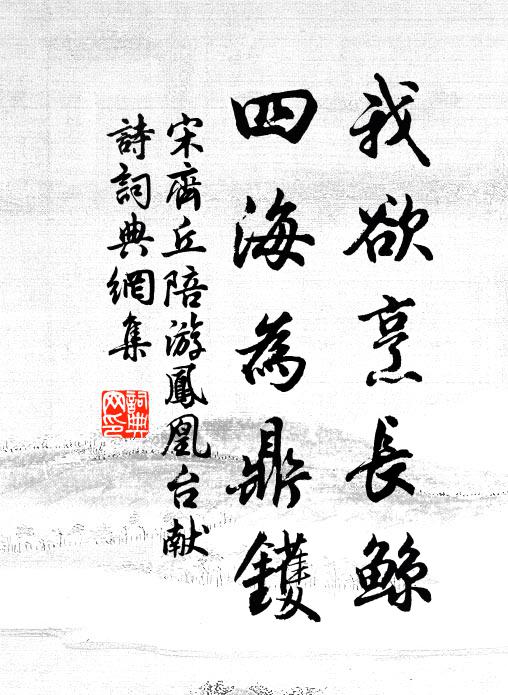 我欲烹長鲸
四海為鼎鑊
宋齊丘陪游鳳凰台献
詩詞典網集
詞典
网印